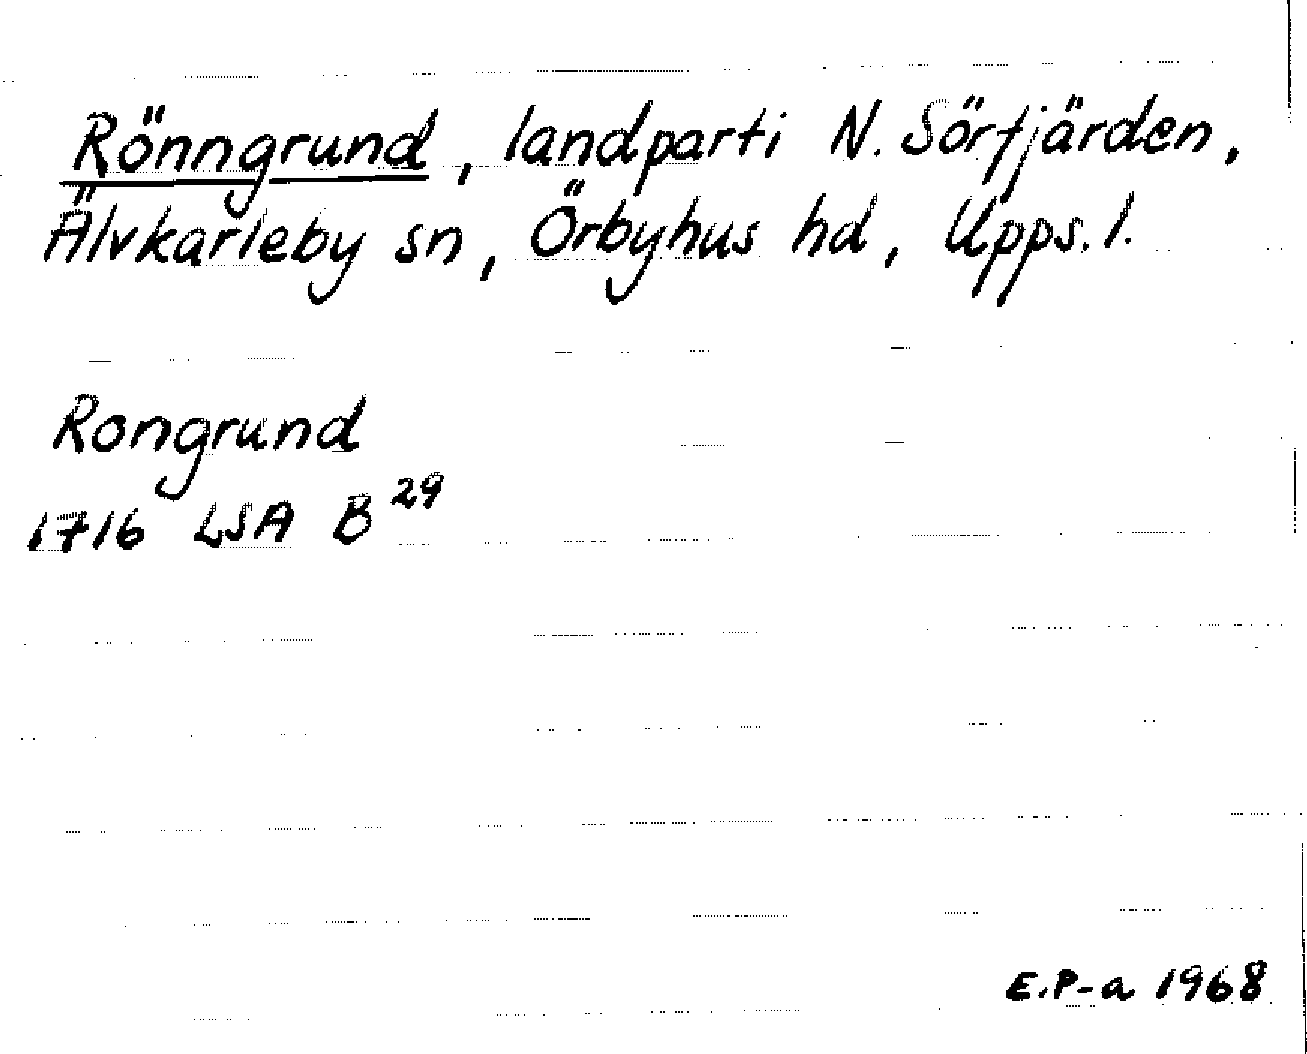 Rönngrund, landparti N. Sörfjärden,
Älvkarleby sn, Örbyhus hd, Upps. l.
Rongrund
1716 LSA B 29
E.P-a 1968